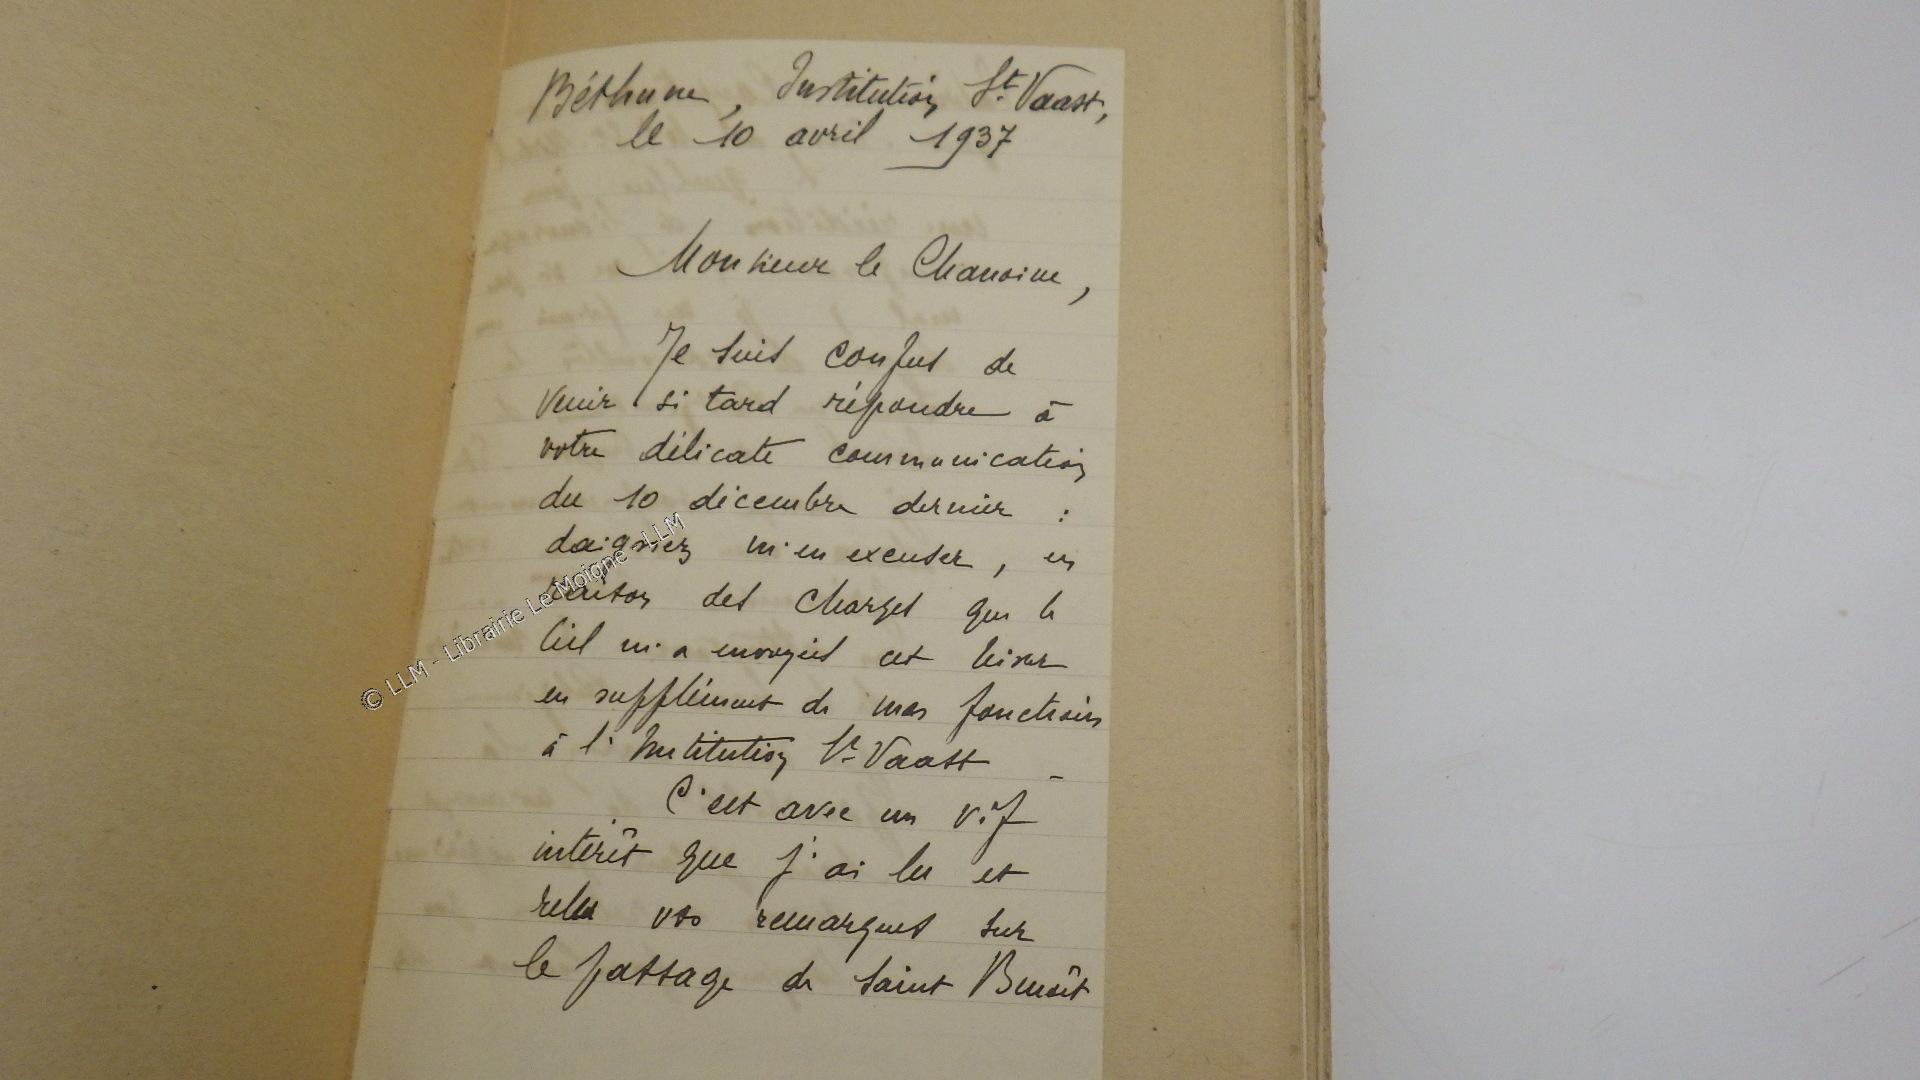 Béthune, Institution St. Vaast,
le 10 avril 1937
Monsieur le Chanoine,
Je suis confus de
venir si tard répondre à
votre délicate communication
du 10 décembre dernier :
daignez m'en excuser, en
raison des charges que le
Ciel m'a envoyées cet hiver
en supplément de mes fonctions
à l'Institution St Vaast -
C'est avec un vif
intérêt que j'ai lu et
relu vos remarques sur
le passage de Saint Benoît
© LLM - Librairie Le Moigne - LLM